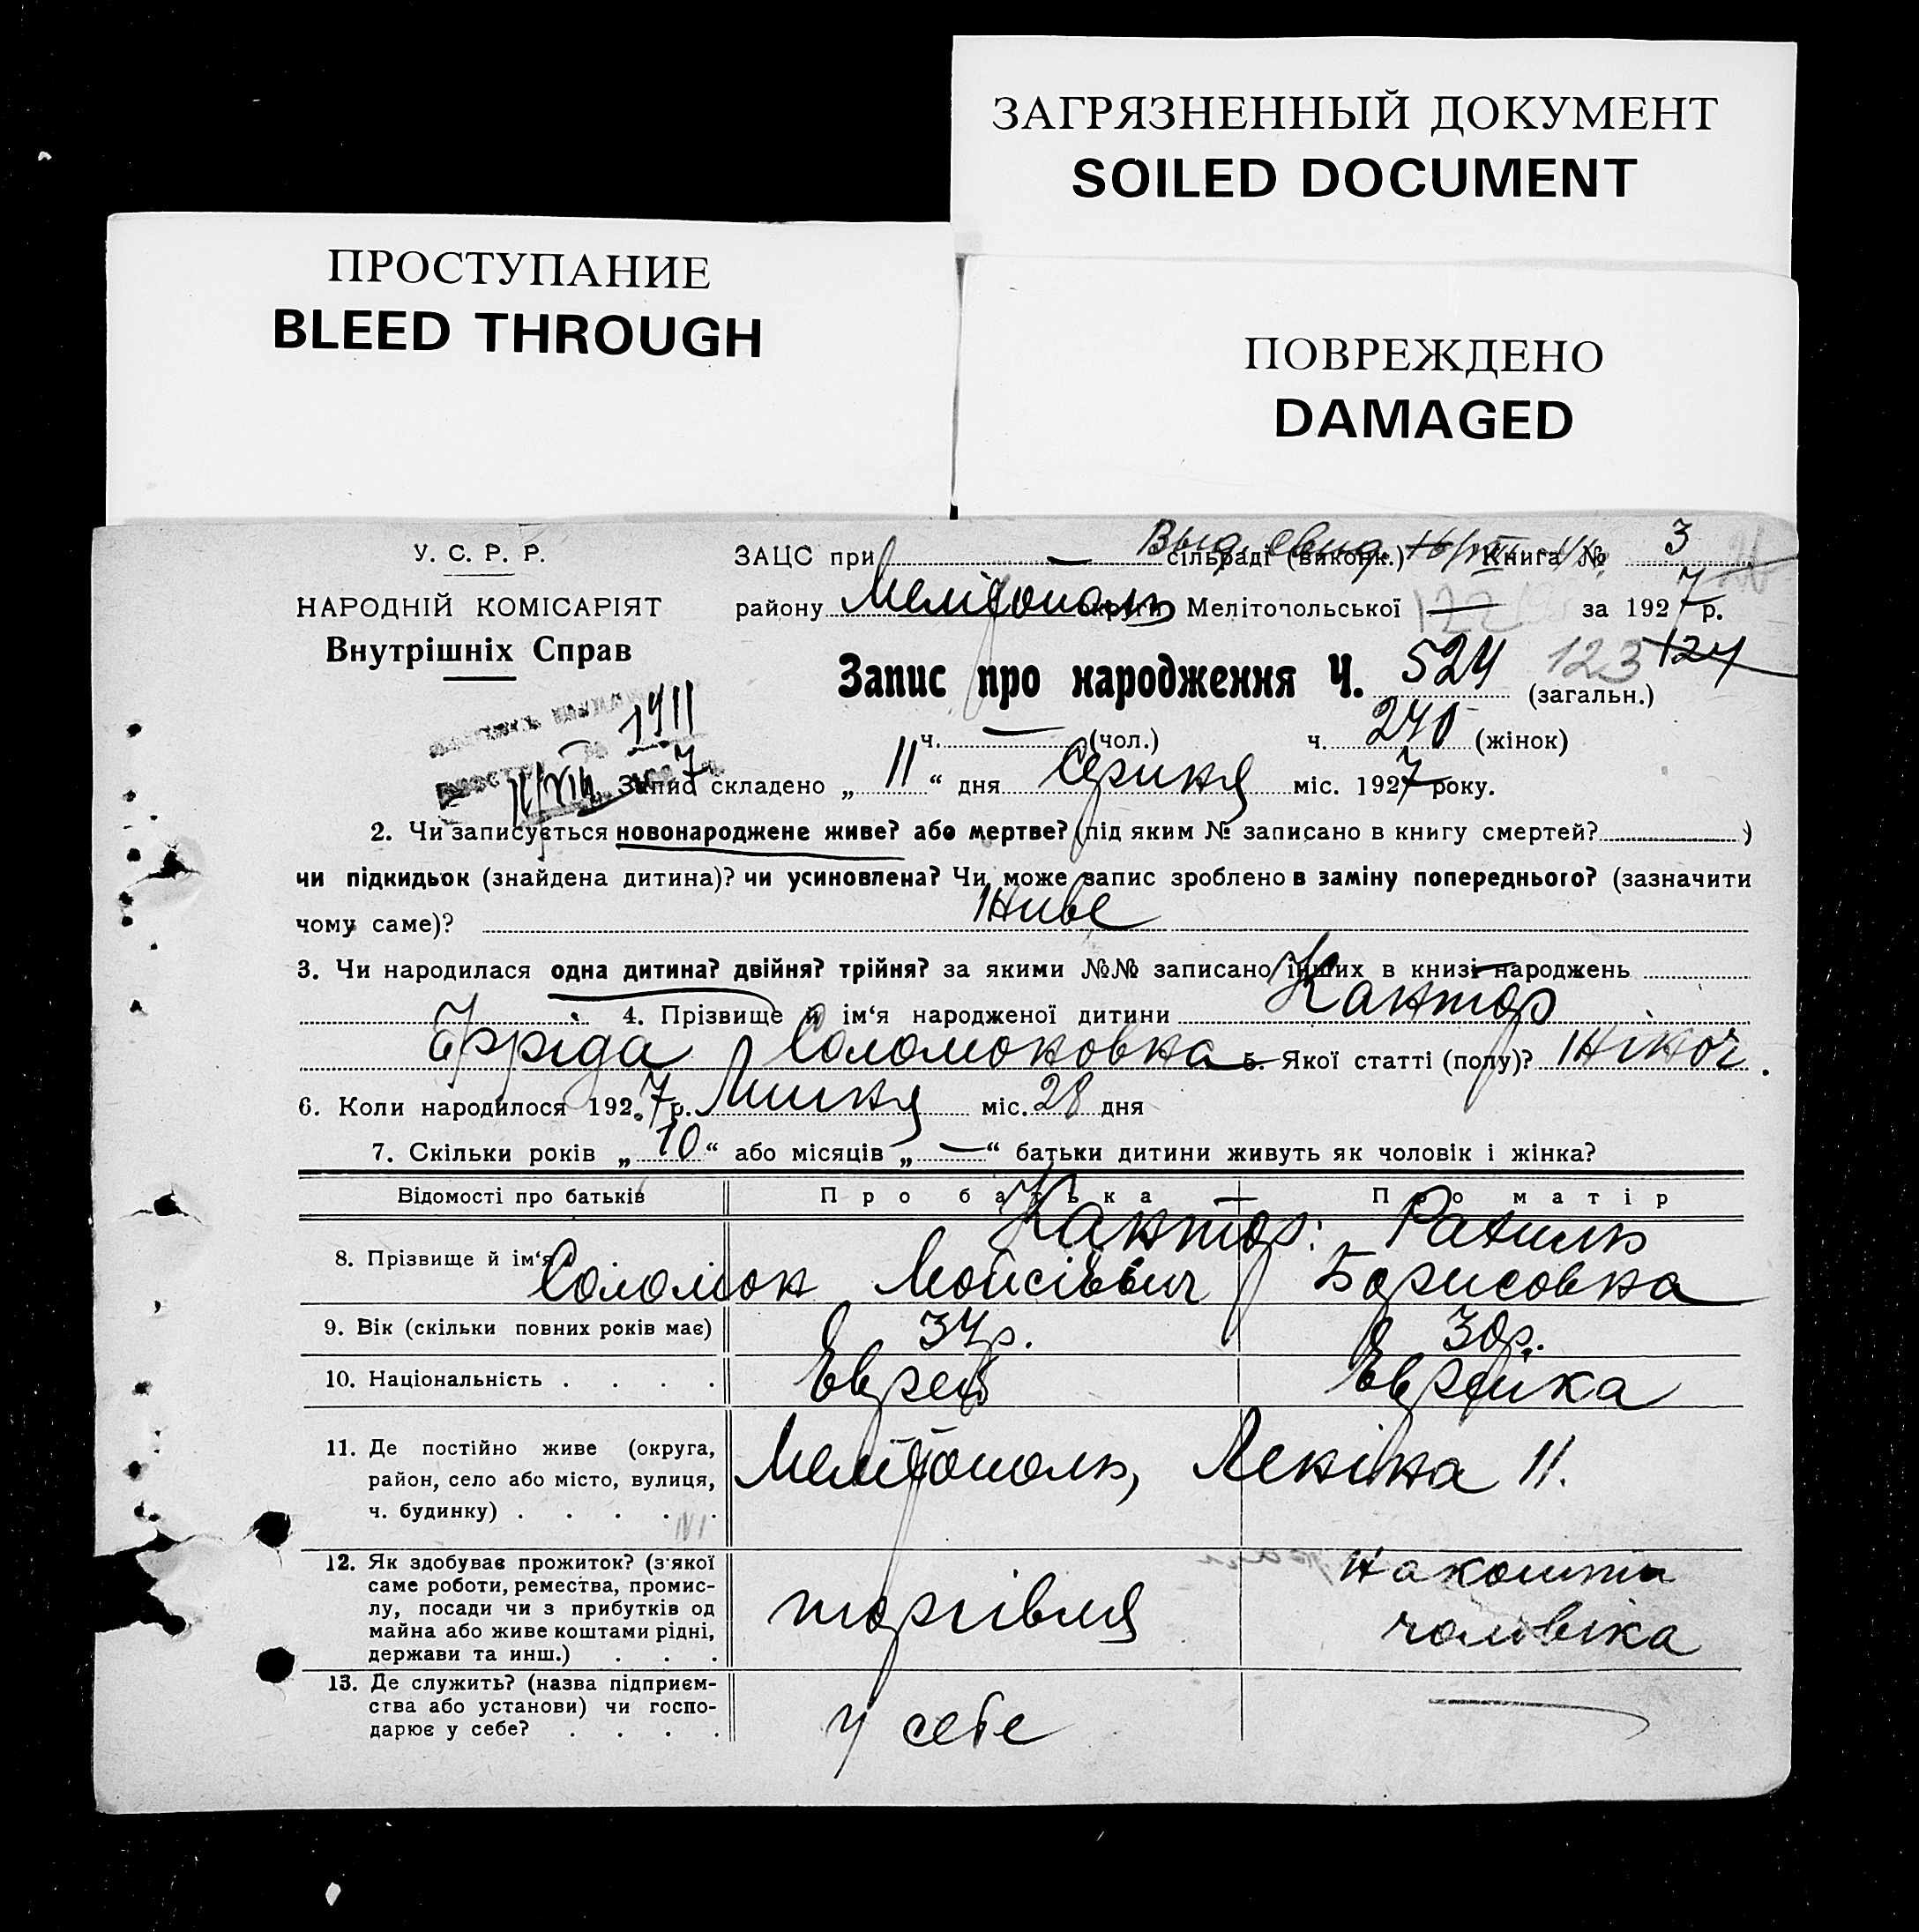 ЗАГРЯЗНЕННЫЙ ДОКУМЕНТ
SOILED DOCUMENT
ПРОСТУПАНИЕ
BLEED THROUGH
ПОВРЕЖДЕНО
DAMAGED
У. С. Р. Р.
НАРОДНІЙ КОМІСАРІЯТ
Внутрішніх Справ
Выд. свид.
ЗАЦС при — сільраді (виконк.) Книга № 3
району Мелітополь округи Мелітопольської — за 1927 р.
Запис про народження Ч. 524 (загальн.) 123 124
ч. — (чол.) ч. 240 (жінок)
1911
Запис складено „ 11 “ дня Серпня міс. 1927 року.
2. Чи записується новонароджене живе? або мертве? (під яким № записано в книгу смертей? )
чи підкидьок (знайдена дитина)? чи усиновлена? Чи може запис зроблено в заміну попереднього? (зазначити
чому саме)? Живе
3. Чи народилася одна дитина? двійня? трійня? за якими №№ записано інших в книзі народжень
4. Прізвище й ім‘я народженої дитини Кантор
Фріда Соломоновна 5. Якої статті (полу)? Жіноч.
6. Коли народилося 1927 р. Липня міс. 28 дня
7. Скільки років „ 10 “ або місяців „ — “ батьки дитини живуть як чоловік і жінка?
Відомості про батьків Про батька Про матір
8. Прізвище й ім‘я Кантор: Рахиль
Соломон Мойсієвич Борисовна
9. Вік (скільки повних років має) 34 р. 30 р.
10. Національність . . . . Еврей Еврейка
11. Де постійно живе (округа,
район, село або місто, вулиця,
ч. будинку) . . . . .
Мелітополь, Леніна 11.
12. Як здобуває прожиток? (з якої
саме роботи, ремества, промис-
лу, посади чи з прибутків од
майна або живе коштами рідні,
держави та инш.) . . .
торгівля
на кошти
чоловіка
13. Де служить? (назва підприєм-
ства або установи) чи госпо-
дарює у себе? . . . .
у себе